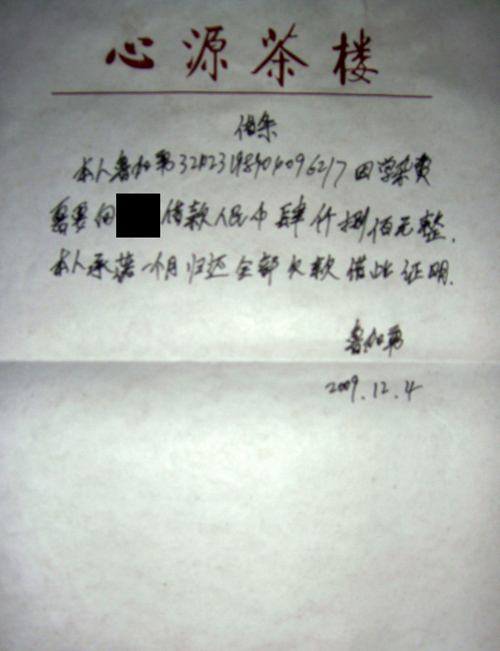 心源茶楼
借条
本人鲁如弟 因学杂费
需要向 借款人民币肆仟捌佰元整.
本人承诺一个月归还全部欠款 借此证明.
鲁如弟
2009.12.4